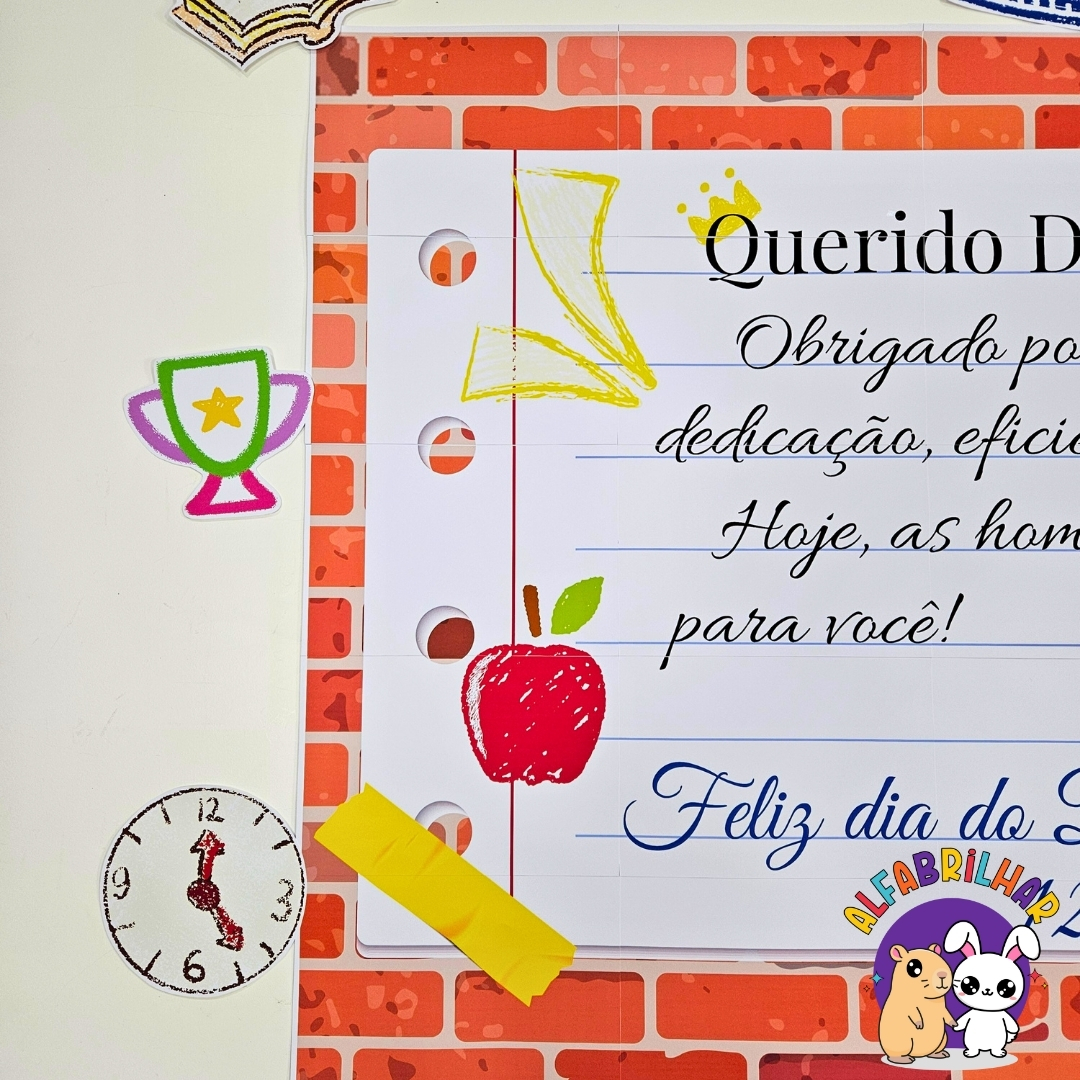 Querido D
Obrigado po
dedicação, eficiê
Hoje, as hom
para você!
Feliz dia do
12
9
3
6
ALFABRILHAR